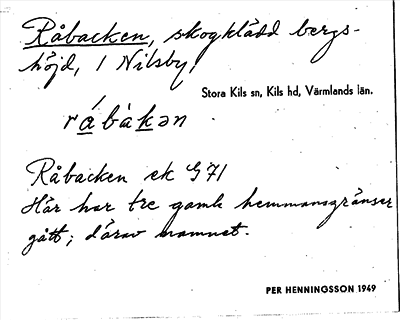 Råbacken, skogklädd bergs-
höjd, i Nilsby,
Stora Kils sn, Kils hd, Värmlands län.
råbàkən
Råbacken ek G 71
Här har tre gamla hemmansgränser
gått; därav namnet.
PER HENNINGSSON 1949